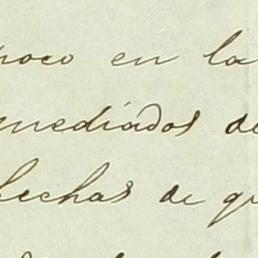 poco en la
mediados de
fechas de